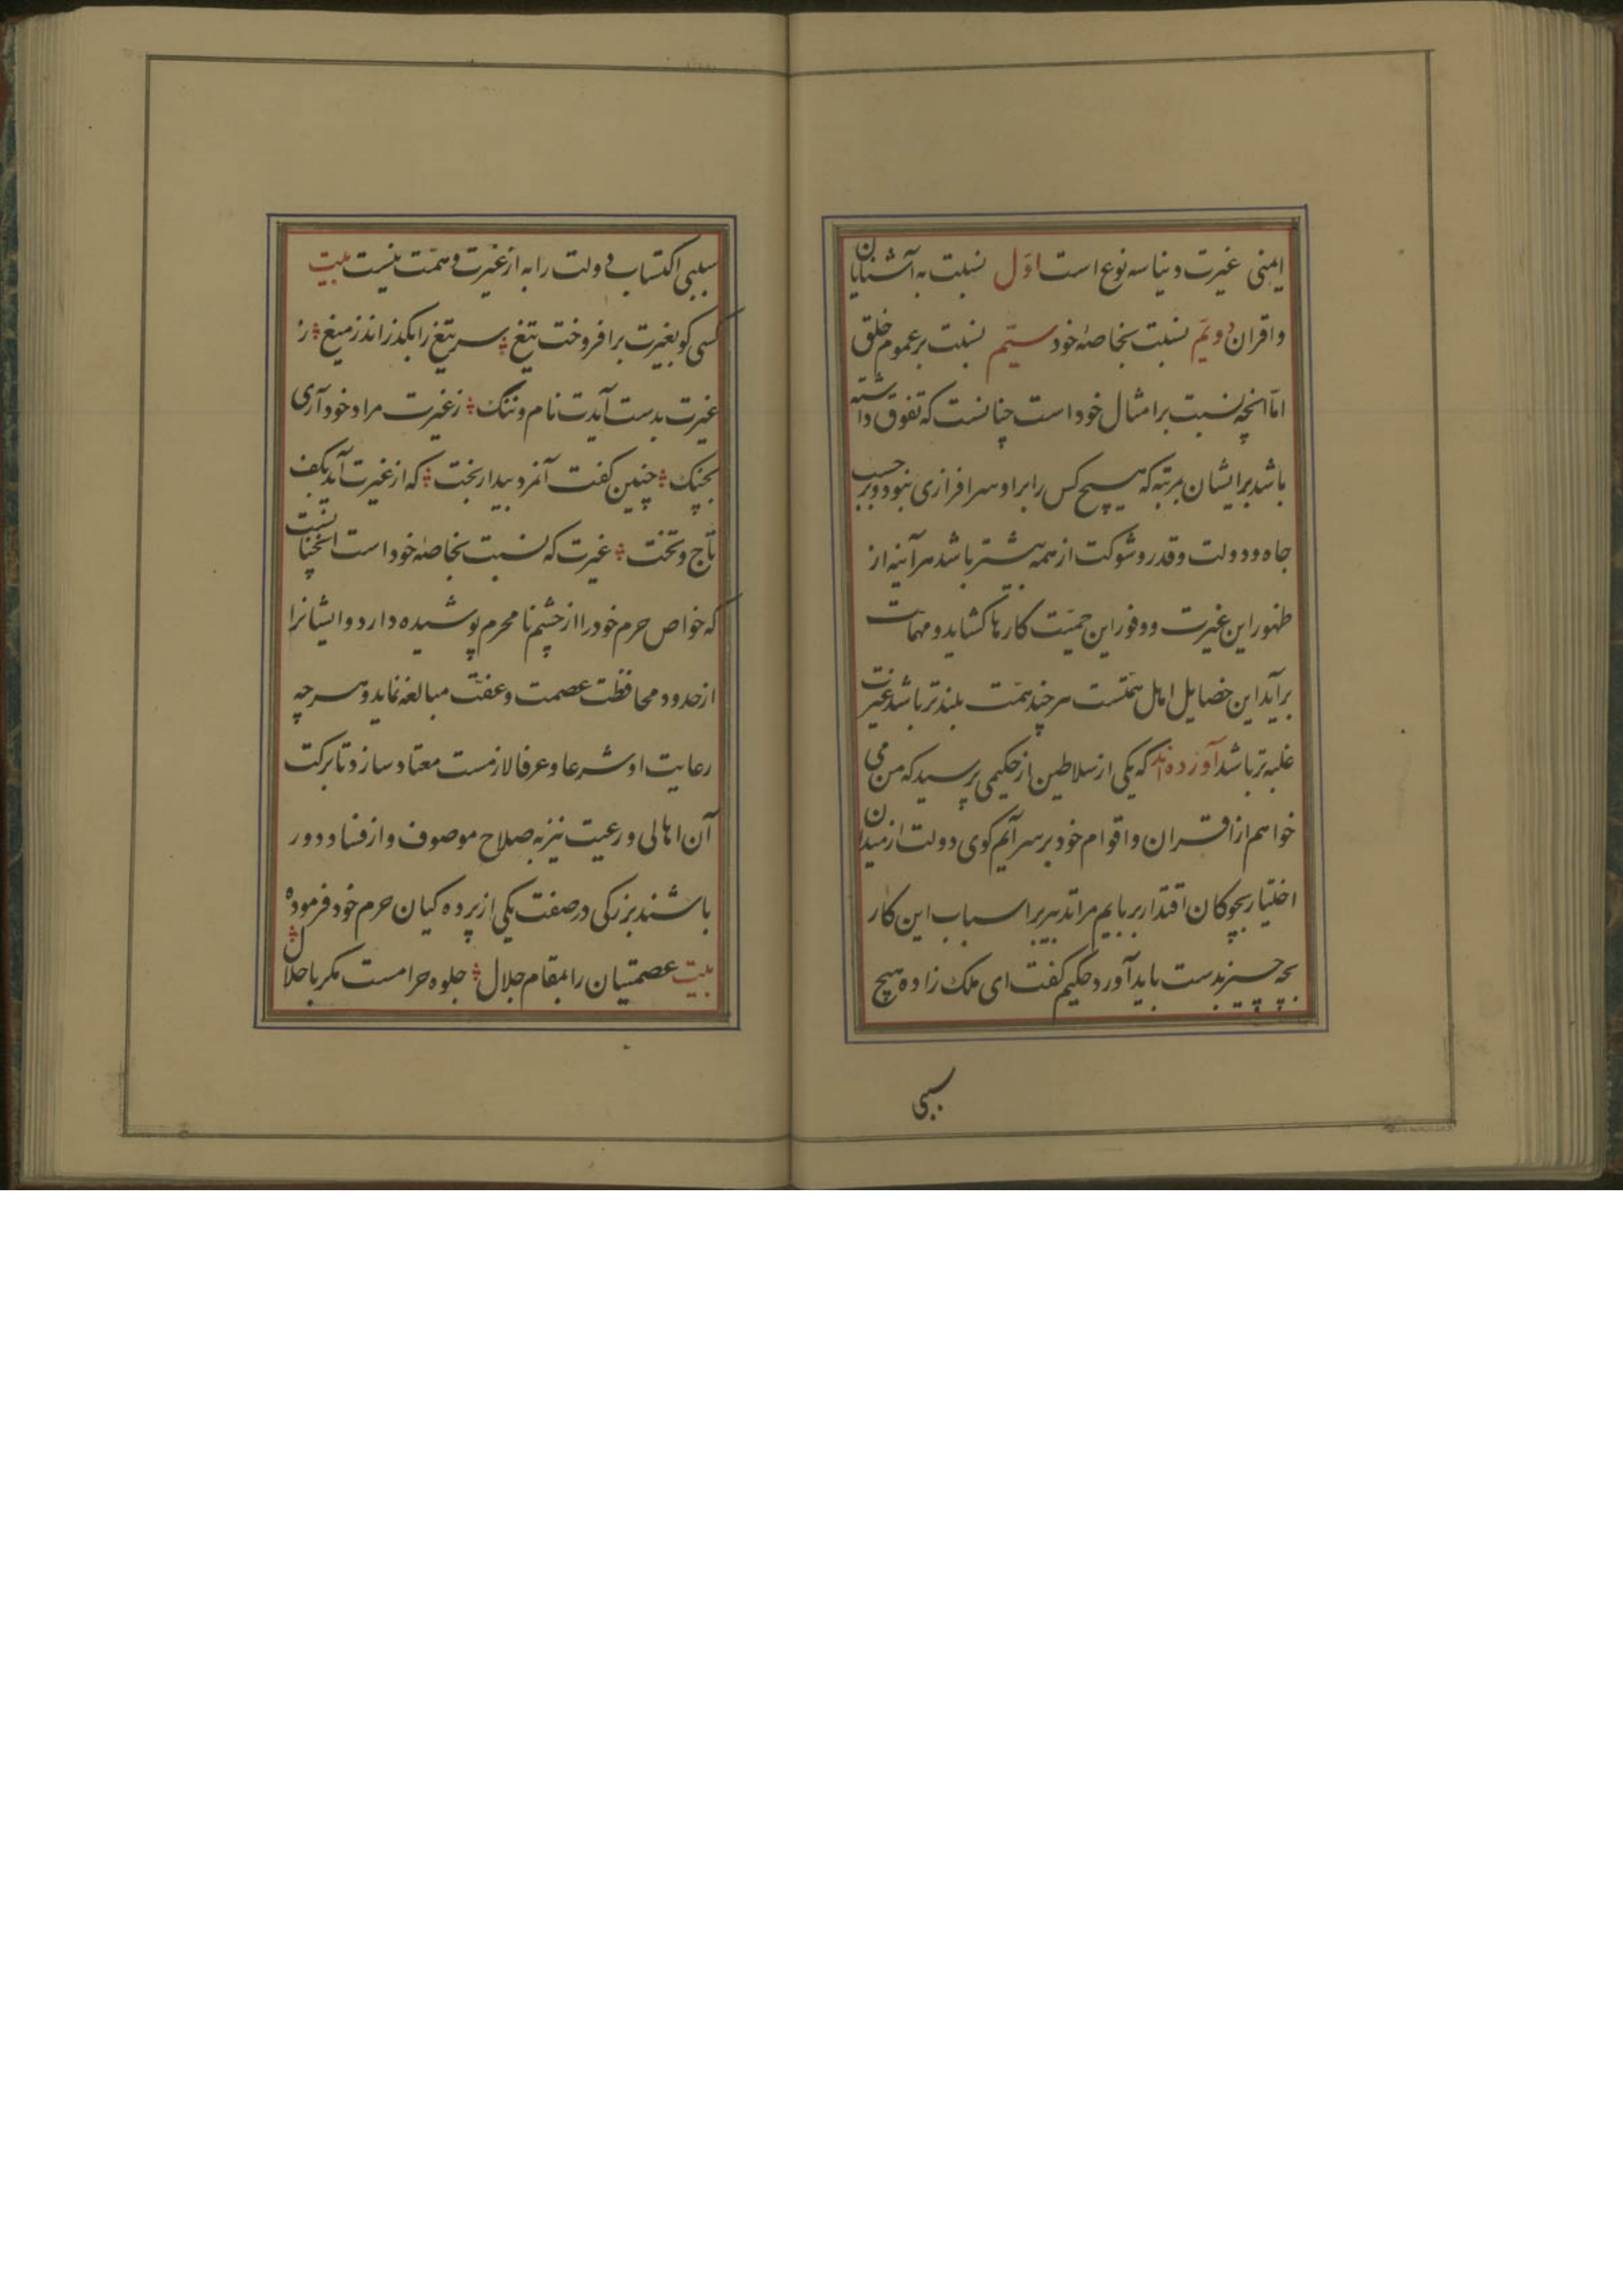 ایمنی غیرت دنیا سه نوع است اوّل نسبت به آشنایان
و اقران دویّم نسبت بخاصهٔ خود سیّم نسبت بر عموم خلق
امّا آنچه نسبت بر امثال خود است چنانست که تفوق داشته
باشد بر ایشان بمرتبه که هیچ کس را بر او سرافرازی نبود و بر حسب
جاه و دولت و قدر و شوکت از همه بیشتر باشد هر آینه از
ظهور این غیرت و وفور این حمیّت کارها کشاید و مهمّات
بر آید این خصایل اهل همّتست هر چند همّت بلندتر باشد غیرت
غلبه تر باشد آورده‌اند که یکی از سلاطین از حکیمی پرسید که من می
خواهم از اقران و اقوام خود بر سر آیم کوی دولت از میدان
اختیار بچوکان اقتدار بربایم مرا تدبیر اسباب این کار
بچه چیز بدست باید آورد حکیم کفت ای ملک زاده هیچ
سببی
سببی اکتساب دولت را به از غیرت و همّت نیست بیت
کسی کو بغیرت برافروخت تیغ سر تیغ را بکذراند ز میغ ز
غیرت بدست آیدت نام و ننک ز غیرت مراد خود آری
بچنک چنین کفت آنمرد بیدار بخت که از غیرت آید بکف
تاج و تخت غیرت که نسبت بخاصهٔ خود است آنچنانست
که خواص حرم خود را از چشم نامحرم پوشیده دارد و ایشانرا
از حدود محافظت عصمت و عفّت مبالغه نماید و هر چه
رعایت او شرعا و عرفا لازمست معتاد سازد تا برکت
آن اهالی و رعیت نیز به صلاح موصوف و از فساد دور
باشند بزرکی در صفت یکی از پرده کیان حرم خود فرموده
بیت عصمتیان را بمقام جلال جلوه حرامست مکر با حلال